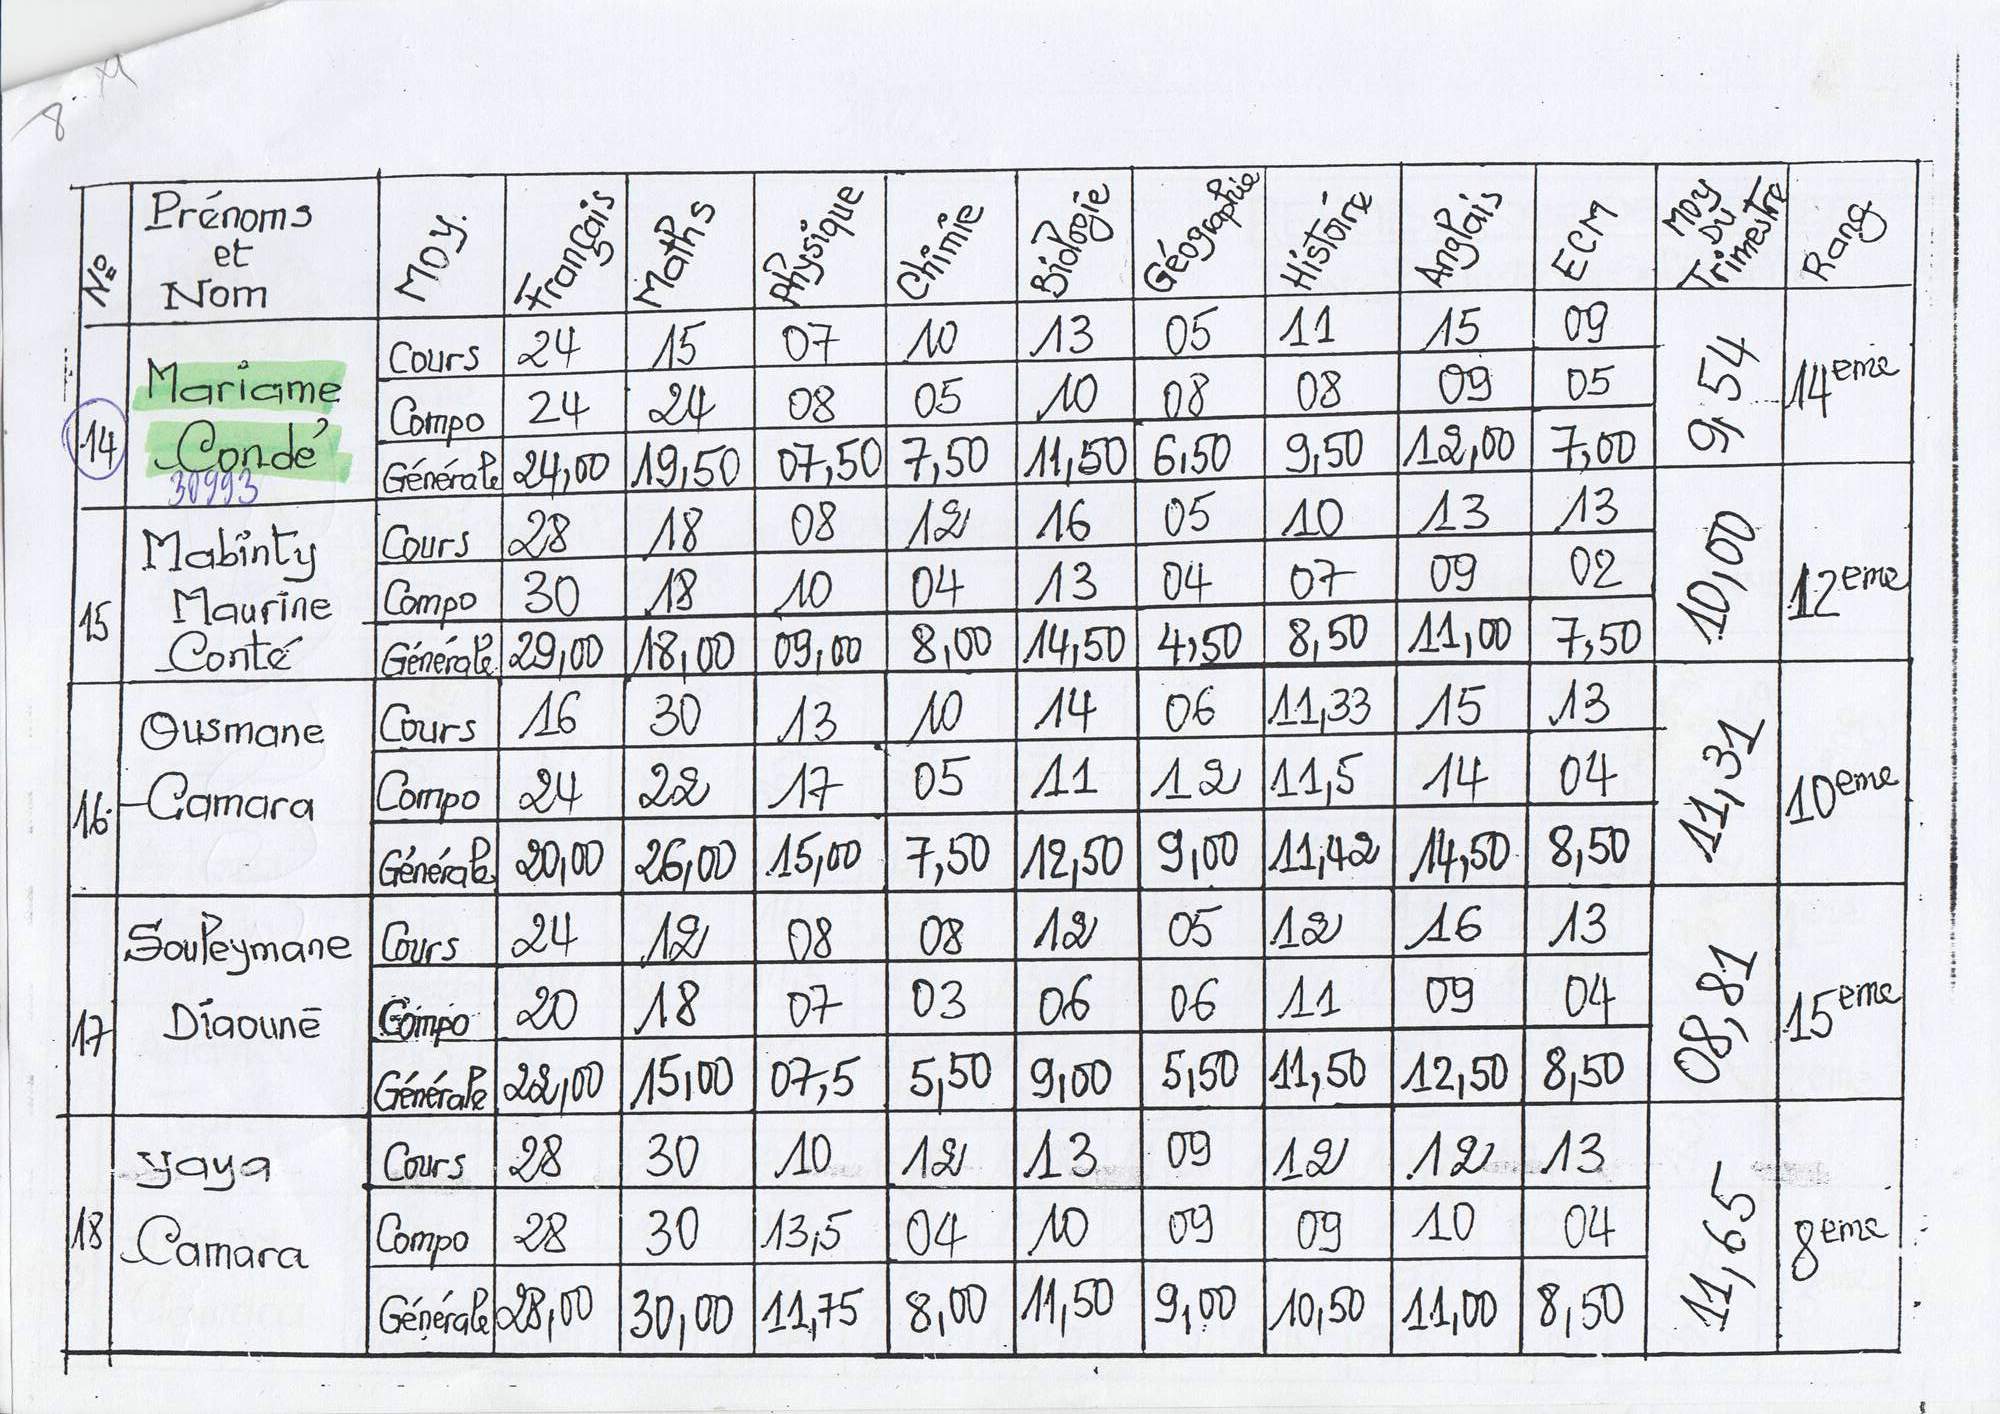 8
N° | Prénoms et Nom | Moy. | Français | Maths | Physique | Chimie | Biologie | Géographie | Histoire | Anglais | ECM | Moy Du Trimestre | Rang
14 | Mariame Condé 30993 | Cours | 24 | 15 | 07 | 10 | 13 | 05 | 11 | 15 | 09 | 9,54 | 14eme
Compo | 24 | 24 | 08 | 05 | 10 | 08 | 08 | 09 | 05
Générale | 24,00 | 19,50 | 07,50 | 7,50 | 11,50 | 6,50 | 9,50 | 12,00 | 7,00
15 | Mabinty Maurine Conté | Cours | 28 | 18 | 08 | 12 | 16 | 05 | 10 | 13 | 13 | 10,00 | 12eme
Compo | 30 | 18 | 10 | 04 | 13 | 04 | 07 | 09 | 02
Générale | 29,00 | 18,00 | 09,00 | 8,00 | 14,50 | 4,50 | 8,50 | 11,00 | 7,50
16 | Ousmane Camara | Cours | 16 | 30 | 13 | 10 | 14 | 06 | 11,33 | 15 | 13 | 11,31 | 10eme
Compo | 24 | 22 | 17 | 05 | 11 | 12 | 11,5 | 14 | 04
Générale | 20,00 | 26,00 | 15,00 | 7,50 | 12,50 | 9,00 | 11,42 | 14,50 | 8,50
17 | Souleymane Diaouné | Cours | 24 | 12 | 08 | 08 | 12 | 05 | 12 | 16 | 13 | 08,81 | 15eme
Compo | 20 | 18 | 07 | 03 | 06 | 06 | 11 | 09 | 04
Générale | 22,00 | 15,00 | 07,5 | 5,50 | 9,00 | 5,50 | 11,50 | 12,50 | 8,50
18 | Yaya Camara | Cours | 28 | 30 | 10 | 12 | 13 | 09 | 12 | 12 | 13 | 11,65 | 8eme
Compo | 28 | 30 | 13,5 | 04 | 10 | 09 | 09 | 10 | 04
Générale | 28,00 | 30,00 | 11,75 | 8,00 | 11,50 | 9,00 | 10,50 | 11,00 | 8,50